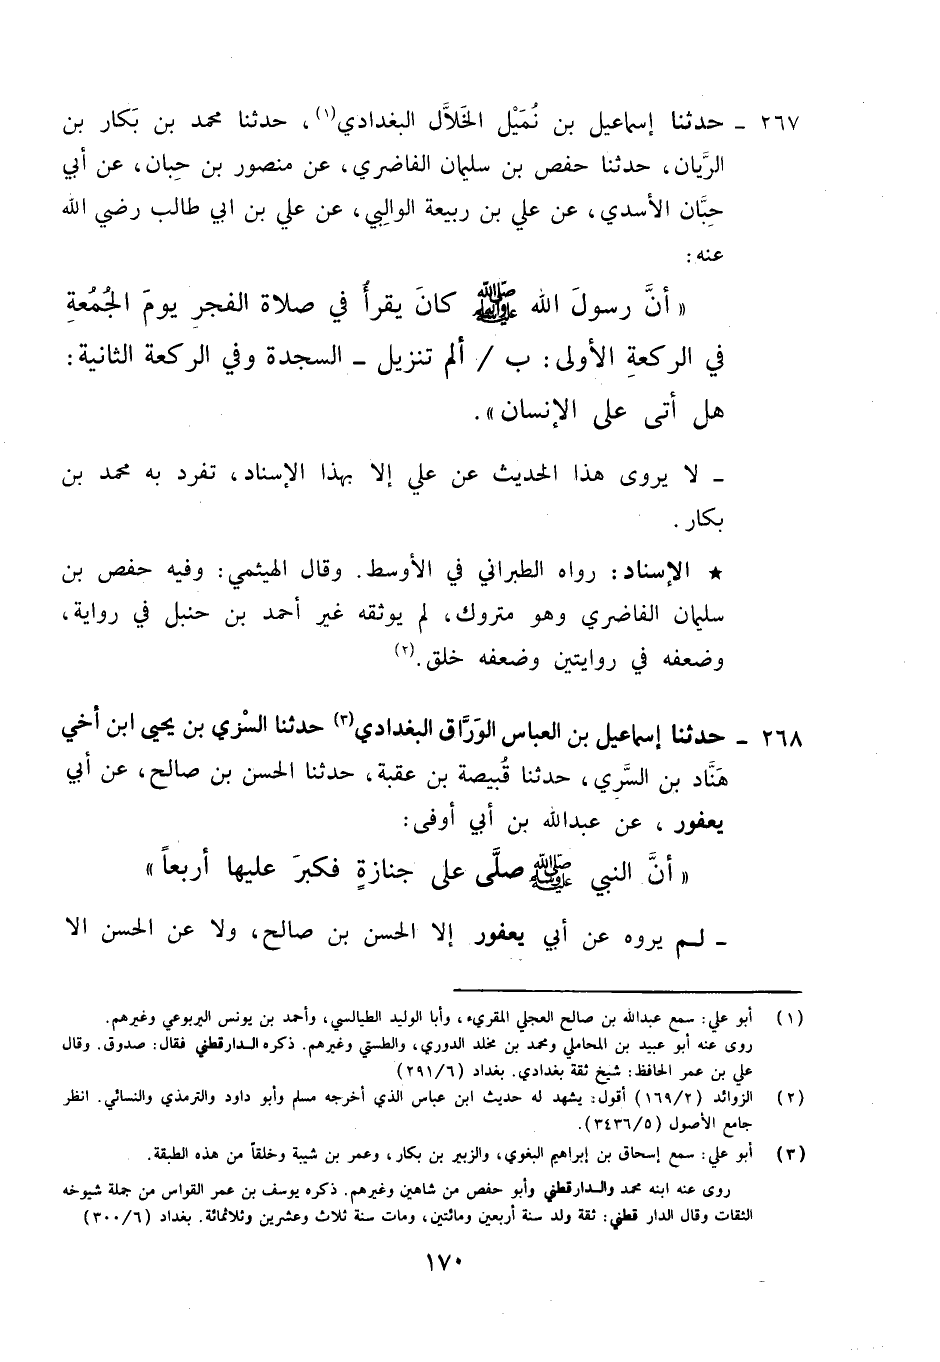 ٢٦٧ ـ حدثنا إسماعيل بن نُمَيْل الخَلاَّل البغدادي(١)، حدثنا محمد بن بَكار بن
الرَّيان، حدثنا حفص بن سليمان الفاضري، عن منصور بن حِبان، عن أبي
حِبَّان الأسدي، عن علي بن ربيعة الوالِبي، عن علي بن ابي طالب رضي الله
عنه:
« أنَّ رسولَ الله ﷺ كانَ يقرأُ في صلاة الفجرِ يومَ الجُمُعةِ
في الركعةِ الأولى: ب / ألم تنزيل ـ السجدة وفي الركعة الثانية:
هل أتى على الإنسان».
ـ لا يروى هذا الحديث عن علي إلا بهذا الإسناد، تفرد به محمد بن
بكار.
★ الإسناد: رواه الطبراني في الأوسط. وقال الهيثمي: وفيه حفص بن
سليمان الفاضري وهو متروك، لم يوثقه غير أحمد بن حنبل في رواية،
وضعفه في روايتين وضعفه خلق.(٢)
٢٦٨ ـ حدثنا إسماعيل بن العباس الوَرَّاق البغدادي(٣) حدثنا السْري بن يحيى ابن أخي
هَنَّاد بن السَّرِي، حدثنا قُبيصة بن عقبة، حدثنا الحسن بن صالح، عن أبي
يعفور، عن عبدالله بن أبي أوفى:
« أنَّ النبي ﷺ صلَّى على جنازةٍ فكبرَ عليها أربعاً »
ـ لم يروه عن أبي يعفور إلا الحسن بن صالح، ولا عن الحسن الا
(١) أبو علي: سمع عبدالله بن صالح العجلي المقريء، وأبا الوليد الطيالسي، وأحمد بن يونس اليربوعي وغيرهم.
روى عنه أبو عبيد بن المحاملي ومحمد بن مخلد الدوري، والطستي وغيرهم. ذكره الدارقطني فقال: صدوق. وقال
علي بن عمر الحافظ: شيخ ثقة بغدادي. بغداد (٢٩١/٦)
(٢) الزوائد (١٦٩/٢) أقول: يشهد له حديث ابن عباس الذي أخرجه مسلم وأبو داود والترمذي والنسائي. انظر
جامع الأصول (٣٤٣٦/٥).
(٣) أبو علي: سمع إسحاق بن إبراهيم البغوي، والزبير بن بكار، وعمر بن شيبة وخلقاً من هذه الطبقة.
روى عنه ابنه محمد والدارقطني وأبو حفص من شاهين وغيرهم. ذكره يوسف بن عمر القواس من جملة شيوخه
الثقات وقال الدار قطني: ثقة ولد سنة أربعين ومائتين، ومات سنة ثلاث وعشرين وثلاثمائة. بغداد (٣٠٠/٦)
١٧٠